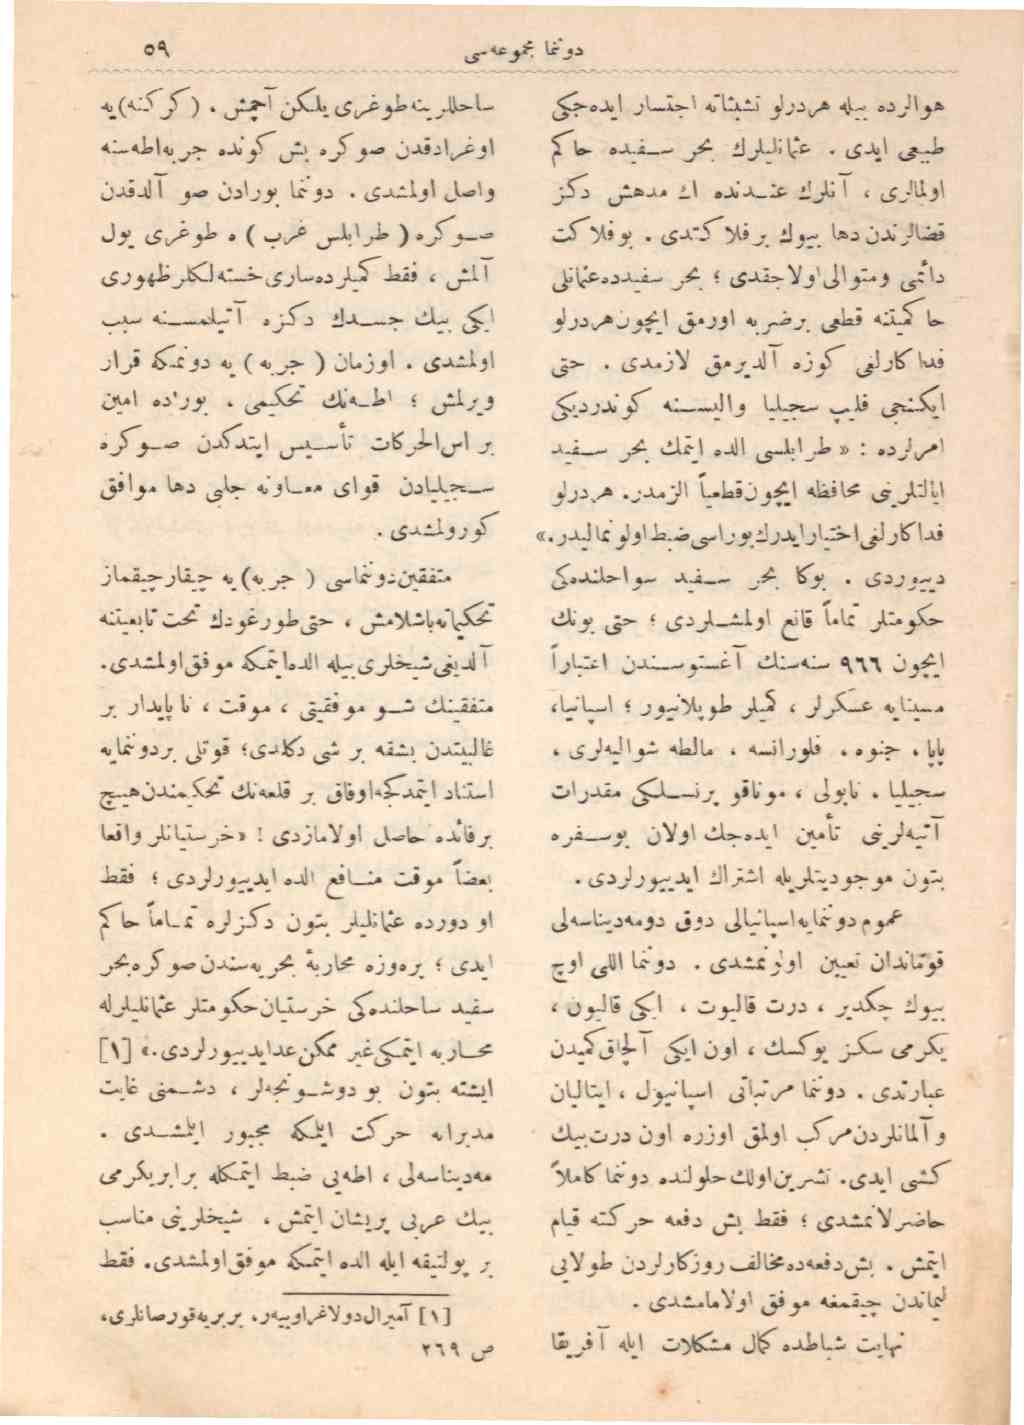 دوننما مجموعه‌سی
٥٩
هوالرده بیله هردرلو تشبثاته اجتسار ایده‌جکی
طبیعی ایدی . عثمانلیلرك بحر سـفیده حاکم
اولمالری ، آنلرك عنـدنده اك مدهش دکز
قضالرندن دها بیوك بر فلاکتدی . بو فلاکت
دائمی ومتوالی اولاجقدی ؛ بحر سفیدده عثمانلی
حاکمیتنه قطعی برضربه اورمق ایچون هردرلو
فداکارلغی کوزه آلدیرمق لازمدی . حتی
ایکنجی فلیپ سجیلیا والیسـنه کوندردیکی
امرلرده : « طرابلسی الده ایتمك بحر سـفید
ایالتلرینی محافظه ایچون قطعیاً الزمدر. هردرلو
فداکارلغی اختیار ایدرك بوراسی ضبط اولونمالیدر.»
دییوردی . بوکا بحر سـفید سواحلنده‌کی
حکومتلر تماماً قانع اولمشـلردی ؛ حتی بونك
ایچون ٩٦٦ سنه‌سنك آغستوسـندن اعتباراً
مسینایه عسکرلر ، کمیلر طوپلانیور ؛ اسپانیا،
پاپا ، جنوه ، فلورانسه ، مالطه شوالیه‌لری ،
سجیلیا ، ناپولی ، موناقو پرنسـلکی مقدرات
آتیه‌لرینی تأمین ایده‌جك اولان بوسـفره
بتون موجودیتلریله اشتراك ایدییورلردی .
عموم دوننمایه اسپانیالی دوق دومه‌دیناسه‌لی
قوماندان تعیین اولونمشدی . دوننما اللی اوچ
بیوك چکدیر ، درت قالیوت ، ایکی قالیون ،
یکرمی سکز یوکسك ، اون ایکی آلچاق کمیدن
عبارتدی . دوننما مرتباتی اسپانیول ، ایتالیان
وآلمانلردن مرکب اولمق اوزره اون درت بیك
کشی ایدی. تشرین اولك حلولنده دوننما کاملاً
حاضرلانمشدی ؛ فقط بش دفعه حرکته قیام
ایتمش . بش دفعه‌ده مخالف روزکارلردن طولایی
لیماندن چیقمغه موفق اولامامشدی .
نهایت شباطده کمال مشکلات ایله آفریقا
ساحللرینه طوغری یلکن آچمش . (کرکنه) یه
اوغرادقدن صوکره بش کونده جربه اطه‌سنه
واصل اولمشدی . دوننما بورادن صو آلدقدن
صـوکره ( طرابلس غرب ) ه طوغری یول
آلمش ، فقط کمیلرده ساری خسته‌لکلر ظهوری
ایکی بیك جسـدك دکزه آتیلمسـنه سبب
اولمشدی . اوزمان ( جربه ) یه دونمکه قرار
ویرلمش ؛ اطـه‌نك تحکیمی ، بوراده امین
بر اس‌الحرکات تأسـیس ایتدکدن صـوکره
سـجیلیادن قوای معـاونه جلبی دها موافق
کورولمشدی .
متفقین دوننماسی ( جربه) یه چیقار چیقماز
تحکیماته باشلامش ، حتی طورغودك تحت تابعیتنه
آلدیغی شیخلری بیله الده ایتمکه موفق اولمشدی.
متفقینك شـو موفقیتی ، موقت ، ناپایدار بر
غالبیتدن بشقه بر شی دکلدی؛ قوتلی بردوننمایه
استناد ایتمدکجه اوفاق بر قلعه‌نك تحکیمندن هیچ
برفائده حاصل اولامازدی ! «خرستیانلر واقعا
بعضاً موقت منـافع الده ایدییورلردی ؛ فقط
او دورده عثمانلیلر بتون دکزلره تمـاماً حاکم
ایدی ؛ پره‌وزه محاربۀ بحریه‌سندن صوکره بحر
سفید ساحلنده‌کی خرستیان حکومتلر عثمانلیلرله
محـاربه ایتمکی غیر ممکن عد ایدییورلردی.» [١]
ایشته بتون بو دوشـونجه‌لر ، دشـمنی غایت
مدبرانه حرکت ایلمکه مجبور ایلمشـدی .
مه‌دیناسه‌لی ، اطه‌یی ضبط ایتمکله برابر یکرمی
بیك عربی پریشان ایتمش ، شیخلرینی مناسب
بر پولتیقه ایله الده ایتمکه موفق اولمشدی. فقط
[١] آمیرال دولاغراوییه‌ر، بربریه قورصانلری،
ص ٢٦٩